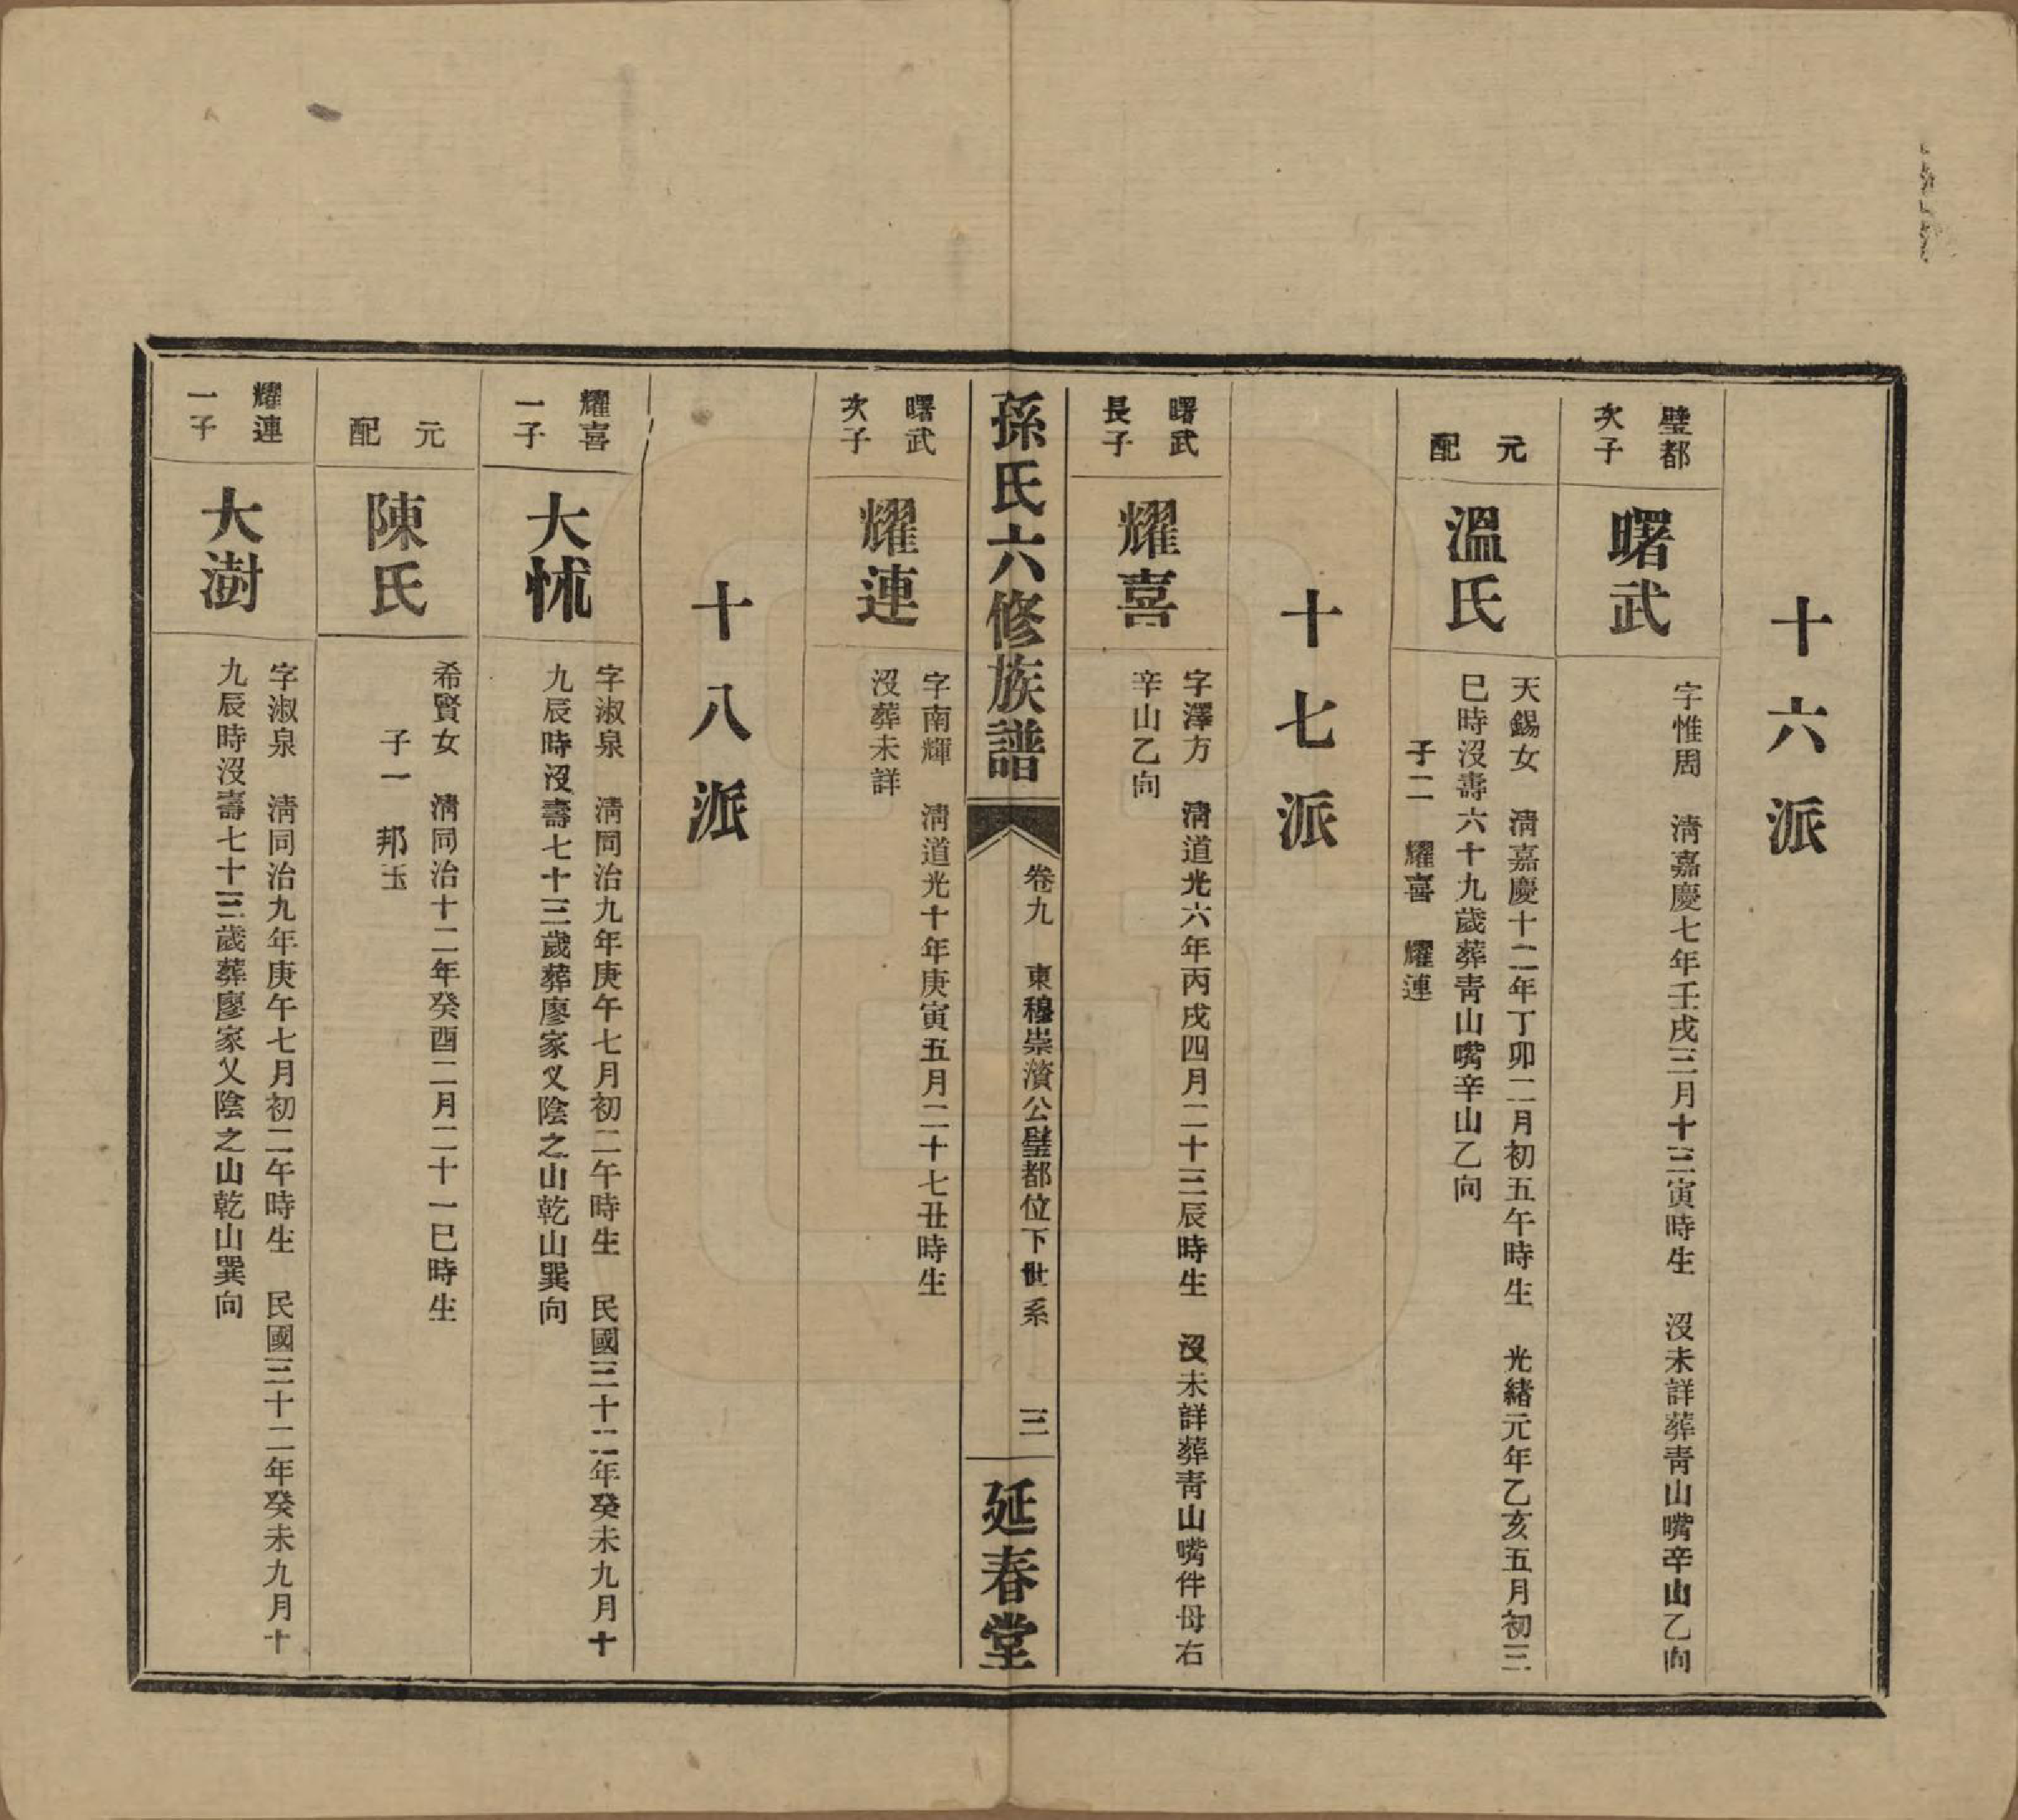 十六派
璧都
次子
曙武
字惟周　淸嘉慶七年壬戌三月十三寅時生　沒未詳葬靑山嘴辛山乙向
元
配
溫氏
天錫女　淸嘉慶十二年丁卯二月初五午時生　光緒元年乙亥五月初三
巳時沒壽六十九歲葬靑山嘴辛山乙向
子二　耀喜　耀連
十七派
曙武
長子
耀喜
字澤方　淸道光六年丙戌四月二十三辰時生　沒未詳葬靑山嘴伴母右
辛山乙向
孫氏六修族譜
卷九　東穆崇濱公璧都位下世系　三
延春堂
曙武
次子
耀連
字南輝　淸道光十年庚寅五月二十七丑時生
沒葬未詳
十八派
耀喜
一子
大怵
字淑泉　淸同治九年庚午七月初二午時生　民國三十二年癸未九月十
九辰時沒壽七十三歲葬廖家乂陰之山乾山巽向
元
配
陳氏
希賢女　淸同治十二年癸酉二月二十一巳時生
子一　邦玉
耀連
一子
大澍
字淑泉　淸同治九年庚午七月初二午時生　民國三十二年癸未九月十
九辰時沒壽七十三歲葬廖家乂陰之山乾山巽向